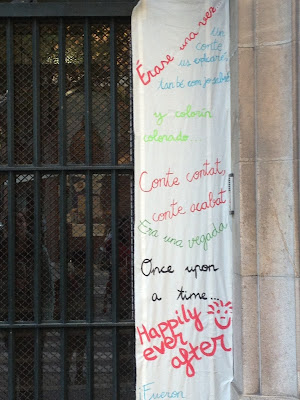 Érase una vez...
un
conte
y colorín
colorado...
Conte contat,
conte acabat
Era una vegada
Once upon
a time...
Happily
ever
after
Fueron